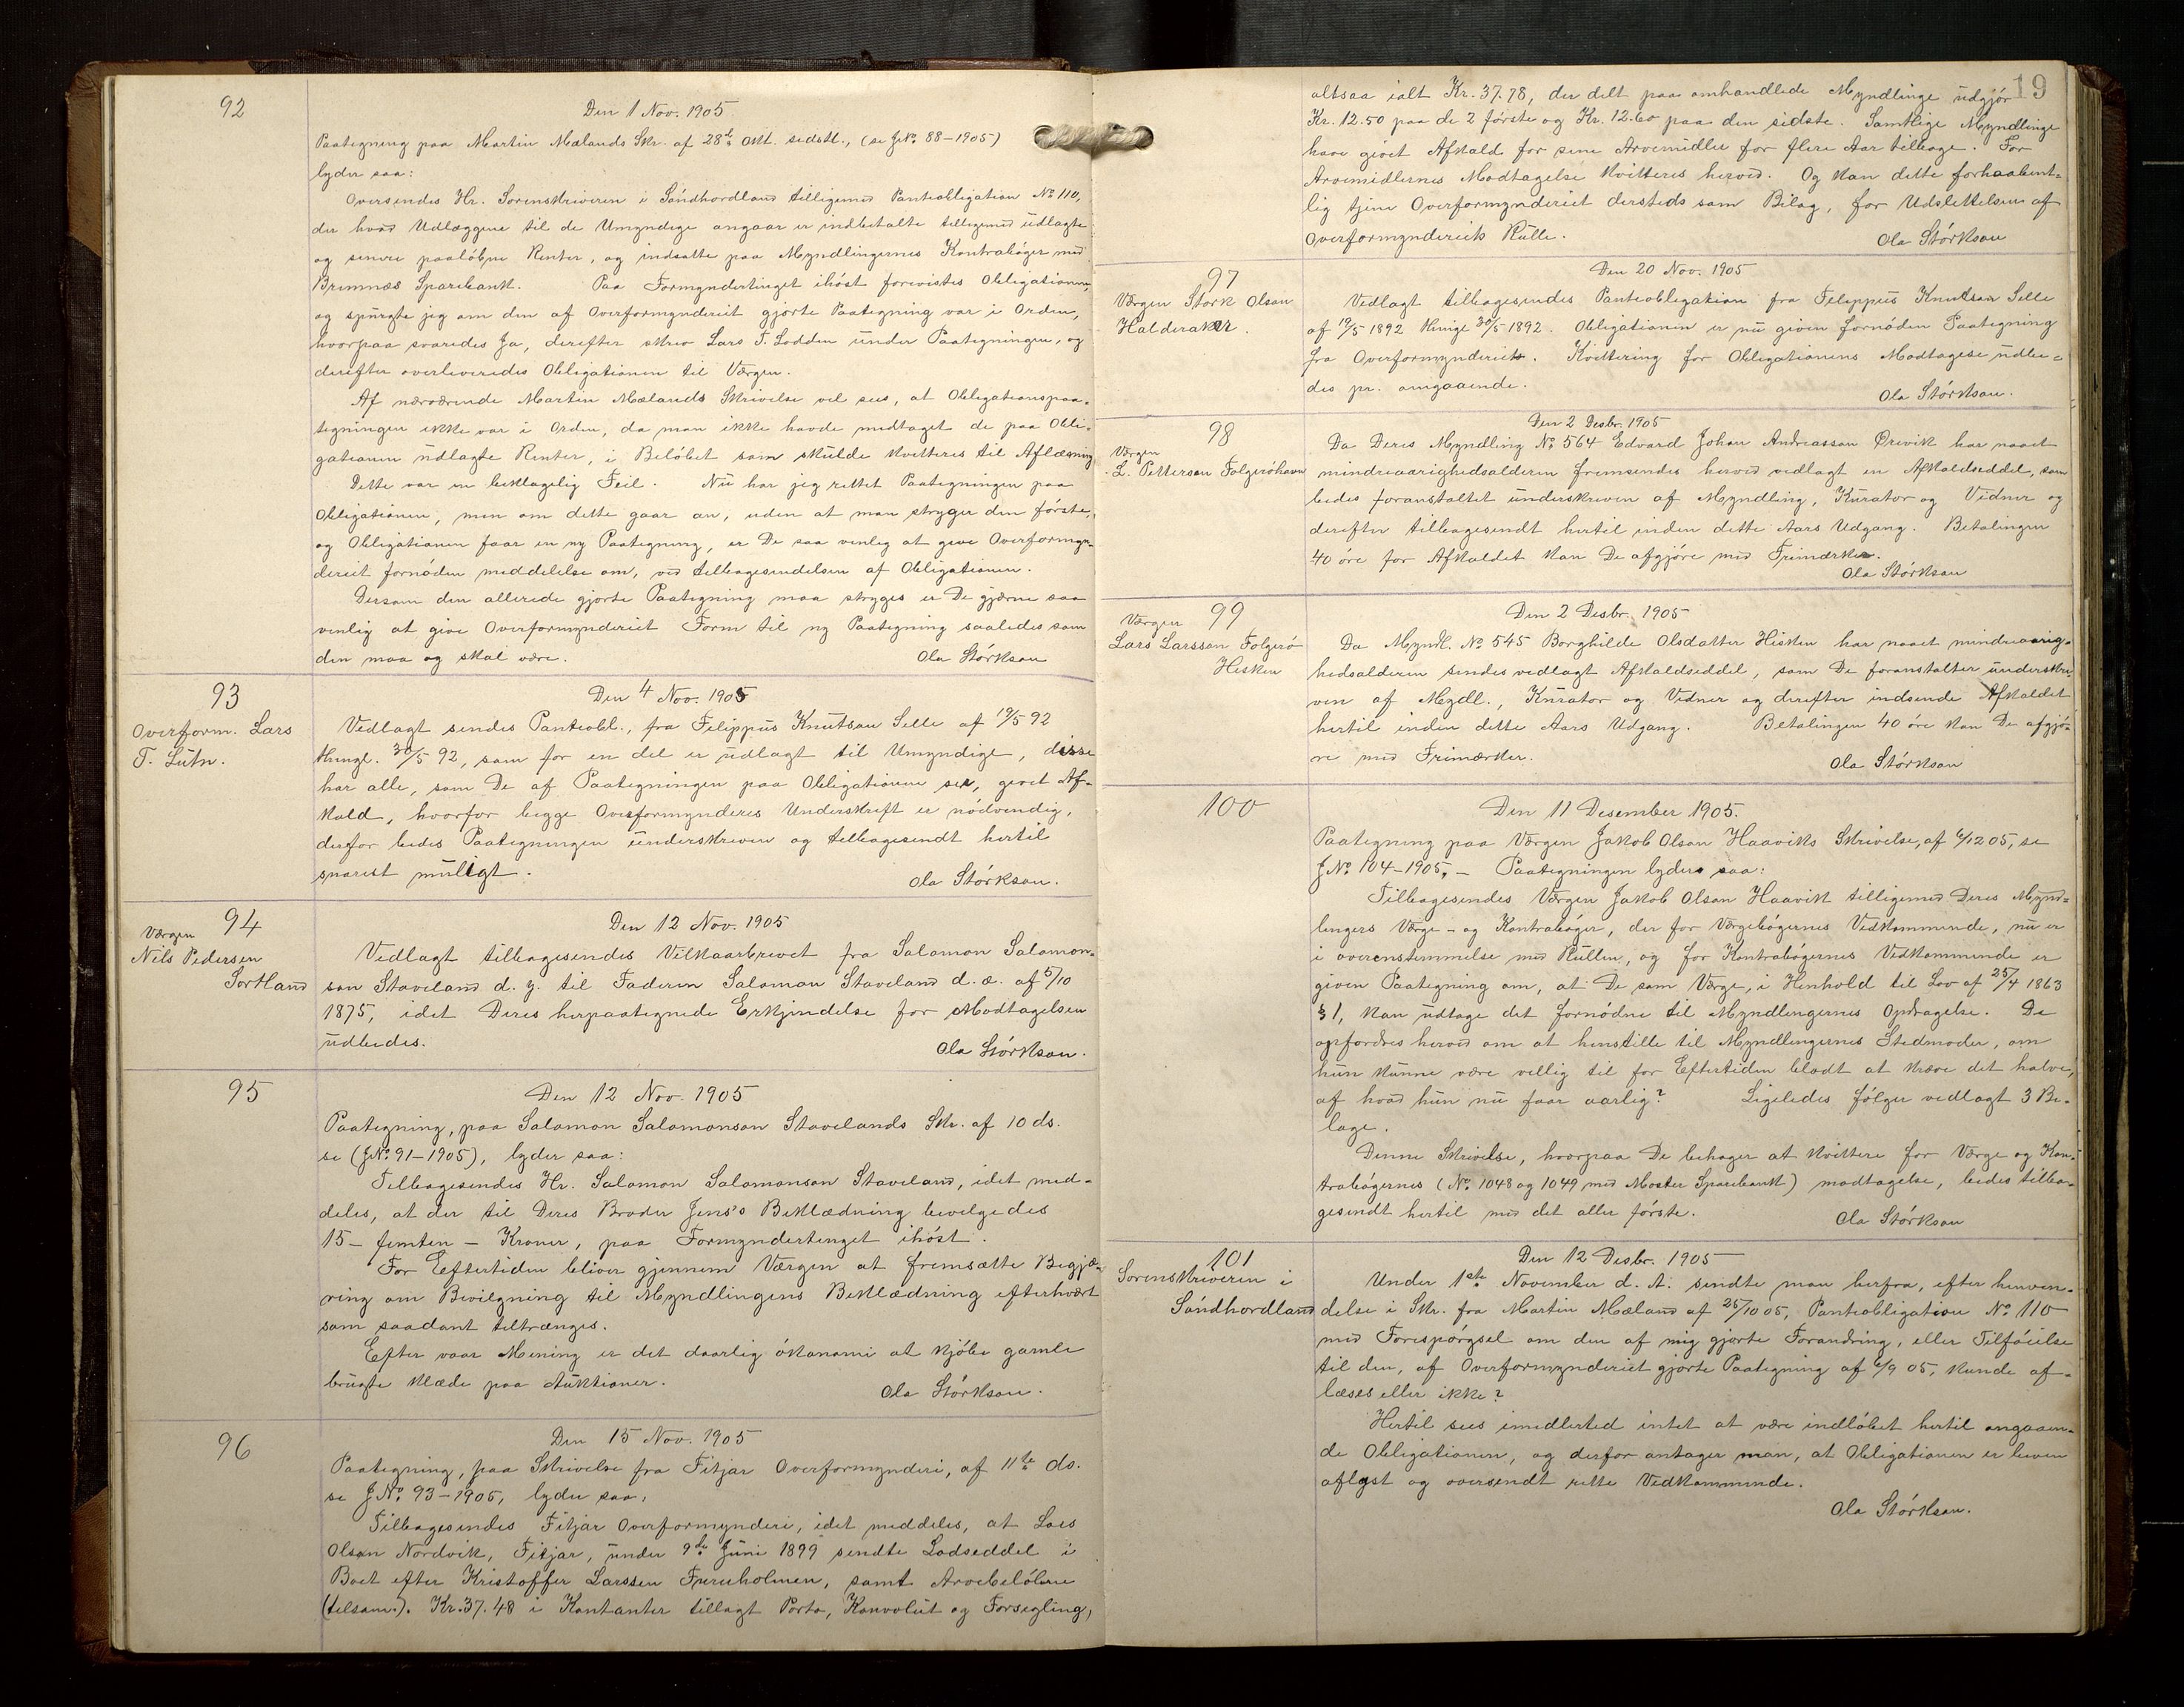 92
Den 1 Nov. 1905
Paategning paa Martin Mælands Skr. af 28de Okt. sidstl., (se JNo. 88-1905)
lyder saa:
Oversendes Hr. Sorenskriveren i Söndhordland tilligemed Panteobligation No 110,
der hvad Udlæggene til de Umyndige angaar er indbetalte tilligemed udlagte
og senere paalöbne Renter, og indsatte paa Myndlingernes Kontraböger med
Bremnæs Sparebank. Paa Formyndertinget ihöst forevistes Obligationen,
og spurgte jeg om den af Overformynderiet gjorte Paategning var i Orden,
hvorpaa svaredes Ja, derefter skrev Lars T. Lodden under Paategningen, og
derefter overleveredes Obligationen til Værgen.
Af nærværende Martin Mælands Skrivelse vil sees, at Obligationspaa-
tegningen ikke var i Orden, da man ikke havde medtaget de paa Obli-
gationen udlagte Renter, i Belöbet som skulde kvitteres til Aflæsning
Dette var en beklagelig Feil. Nu har jeg rettet Paategningen paa
Obligationen, men om dette gaar an, uden at man stryger den förste,
og Obligationen faar en ny Paategning, er De saa venlig at give Overformyn-
deriet fornöden meddelelse om, ved tilbagesendelsen af Obligationen.
Dersom den allerede gjorte Paategning maa stryges er De gjærne saa
venlig at give Overformynderiet Form til ny Paategning saaledes som
den maa og skal være. Ola Störkson
93
Overform. Lars
T. Lütn.
Den 4 Nov. 1905
Vedlagt sendes Panteobl., fra Filippus Knutson Selle af 19/5 92
thingl. 30/5 92, som for en del er udlagt til Umyndige, disse
har alle, som De af Paategningen paa Obligationen ser, givet Af-
kald, hvorfor begge Overformynderes Underskrift er nödvendig,
derfor bedes Paategningen underskreven og tilbagesendt hertil
snarest muligt.
Ola Störkson.
94
Værgen
Nils Pedersen
Sortland
Den 12 Nov. 1905
Vedlagt tilbagesendes Vilkaarbrevet fra Salomon Salomon-
son Staveland d. y. til Faderen Salomon Staveland d. æ. af 5/10
1875, idet Deres herpaategnede Erkjendelse for Modtagelsen
udbedes.
Ola Störkson.
95
Den 12 Nov. 1905
Paategning, paa Salomon Salomonson Stavelands Skr. af 10 ds.
se (JNo. 91-1905), lyder saa:
Tilbagesendes Hr. Salomon Salomonson Staveland, idet med-
deles, at der til Deres Broder Jens's Beklædning bevilgedes
15 - femten - Kroner, paa Formyndertinget ihöst.
For Eftertiden bliver gjennem Værgen at fremsætte Begjæ-
ring om Bevilgning til Myndlingens Beklædning efterhvert
som saadant tiltrænges.
Efter vaar Mening er det daarlig ökonomi at kjöbe gamle
brugte klæde paa Auktioner. Ola Störkson.
96
Den 15 Nov. 1905
Paategning, paa Skrivelse fra Fitjar Overformynderi, af 11te ds.
se JNo. 93-1905, lyder saa,
Tilbagesendes Fitjar Overformynderi, idet meddeles, at Lars
Olson Nordvik, Fitjar, under 9de Juni 1899 sendte Lodseddel i
Boet efter Kristoffer Larssen Furuholmen, samt Arvebelöbene
(tilsam.). Kr. 37.48 i Kontanter tillagt Porto, Konvolut og Forsegling,
19
altsaa ialt Kr. 37.78, der delt paa omhandlede Myndlinge udgjör
Kr. 12.50 paa de 2 förste og Kr. 12.60 paa den sidste. Samtlige Myndlinge
have givet Afkald for sine Arvemidler for flere Aar tilbage. For
Arvemidlernes Modtagelse kvitteres herved. Og kan dette forhaabent-
lig tjene Overformynderiet dersteds som Bilag, for Udslettelsen af
Overformynderiets Rulle. Ola Störkson
97
Værgen Störk Olson
Halderaker.
Den 20 Nov. 1905
Vedlagt tilbagesendes Panteobligation fra Filippus Knutson Selle
af 19/5 1892 thinge 30/5 1892. Obligationen er nu given fornöden Paategning
fra Overformynderiet. Kvittering for Obligationens Modtagese udbe-
des pr. omgaaende.
Ola Störkson.
98
Værgen
L. Petterson Folgeröhavn
Den 2 Desbr. 1905
Da Deres Myndling No. 564 Edvard Johan Andreasson Orevik har naaet
mindreaarighedsalderen fremsendes herved vedlagt en Afkaldseddel, som
bedes foranstaltet underskreven af Myndling, Kurator og Vidner og
derefter tilbagesendt hertil inden dette Aars Udgang. Betalingen
40 öre for Afkaldet kan De afgjöre med Frimærker.
Ola Störkson
99
Værgen
Lars Larsson Folgerö
Hisken
Den 2 Desbr. 1905
Da Myndl. No. 545 Borghilde Olsdatter Hisken har naaet mindreaarig-
hedsalderen sendes vedlagt Afkaldseddel, som De foranstalter underskre-
ven af Mydl., Kurator og Vidner og derefter indsende Afkaldet
hertil inden dette Aars Udgang. Betalingen 40 öre kan De afgjö-
re med Frimærker.
Ola Störkson
100
Den 11 Desember 1905.
Paategning paa Værgen Jakob Olson Haaviks Skrivelse, af 6/12 05, se
JNo. 104-1905, - Paategningen lyder saa:
Tilbagesendes Værgen Jakob Olson Haavik tilligemed Deres Mynd-
lingers Værge- og Kontraböger, der for Værgebögernes Vedkommende, nu er
i overenstemmelse med Rullen, og for Kontrabögernes Vedkommende er
given Paategning om, at De som Værge, i Henhold til Lov af 25/4 1863
§1, kan udtage det fornödne til Myndlingernes Opdragelse. De
opfordres herved om at henstille til Myndlingernes Stedmoder, om
hun kunne være villig til for Eftertiden blodt at kræve det halve,
af hvad hun nu faar aarlig? Ligeledes fölger vedlagt 3 Bi-
lage.
Denne Skrivelse, hvorpaa De behager at kvittere for Værge og Kon-
trabögernes (No. 1048 og 1049 med Moster Sparebank) modtagelse, bedes tilba-
gesendt hertil med det aller förste.
Ola Störkson
101
Sorenskriveren i
Söndhordland
Den 12 Desbr. 1905
Under 1ste November d. A. sendte man herfra, efter henven-
delse i Skr. fra Martin Mæland af 25/10 05, Panteobligation No. 110
med Forespörgsel om den af mig gjorte Forandring, eller Tilföielse
til den, af Overformynderiet gjorte Paategning af 6/9 05, kunde af-
læses eller ikke?
Hertil sees imidlertid intet at være indlöbet hertil angaaen-
de Obligationen, og derfor antager man, at Obligationen er bleven
aflyst og oversendt rette Vedkommende.
Ola Störkson.